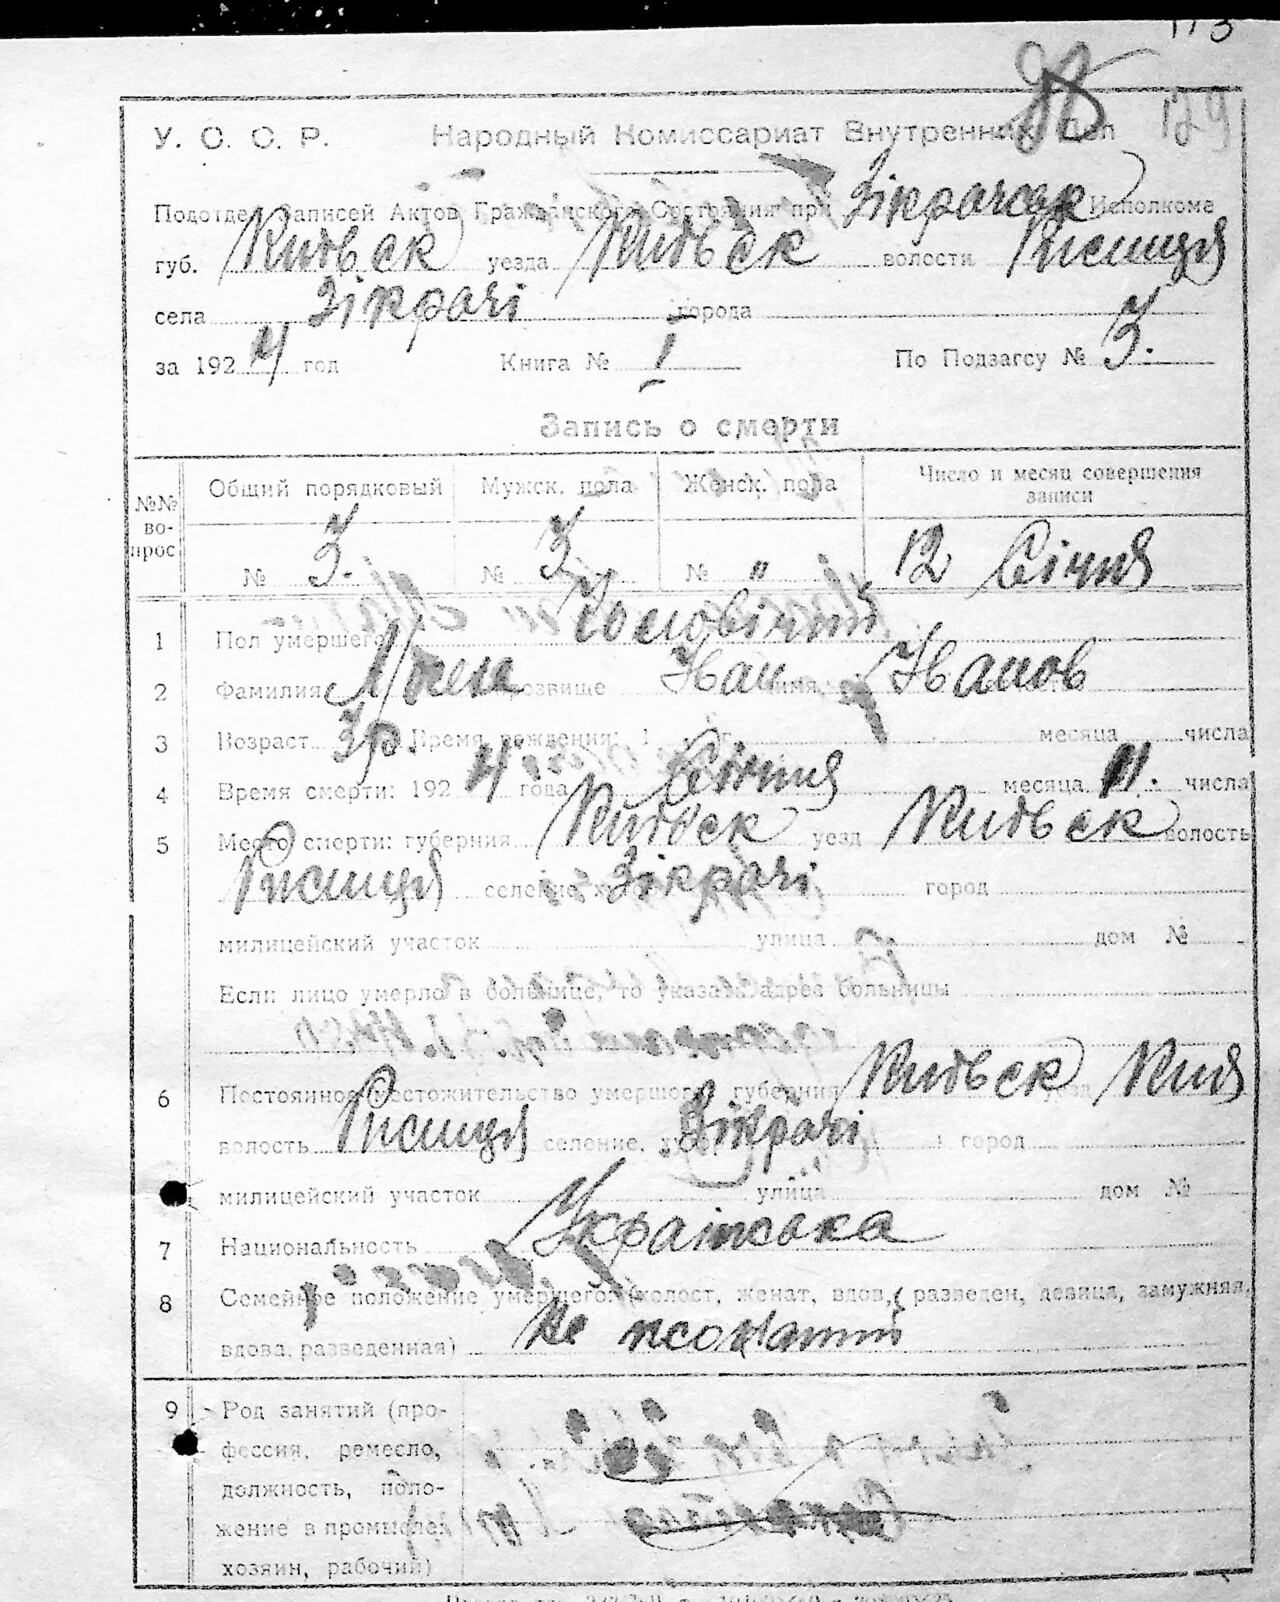 113
129
У. С. С. Р. Народный Комиссариат Внутренних Дел
Подотдел Записей Актов Гражданского Состояния при Зікрачсок Исполкоме
губ. Київск уезда Київск волости Ржищів
села Зікрачі города
за 1924 год Книга № 1 По Подзагсу № 3.
Запись о смерти
№№ вопрос Общий порядковый Мужск. пола Женск. пола Число и месяц совершения записи
№ 3. № 3 № " 12 Січня
1 Пол умершего Чоловічий
2 Фамилия прозвище Иван имя Иванов
3 Возраст 3 р. Время рождения: 1 г. месяца числа
4 Время смерти: 1924 года Січня месяца 11. числа
5 Место смерти: губерния Київск уезд Київск волость
селение, Зікрачі город
милицейский участок улица дом №
Если лицо умерло в больнице, то указать адрес больницы
6 Постоянное местожительство умершого: губерния Київск уезд Київ
волость селение, Зікрачі город
милицейский участок улица дом №
7 Национальность Українська
8 Семейное положение умершего: (холост, женат, вдов, разведен, девица, замужняя,
вдова, разведенная) Не жонатий
9 Род занятий (про-
фессия, ремесло,
должность, поло-
жение в промысле:
хозяин, рабочий)